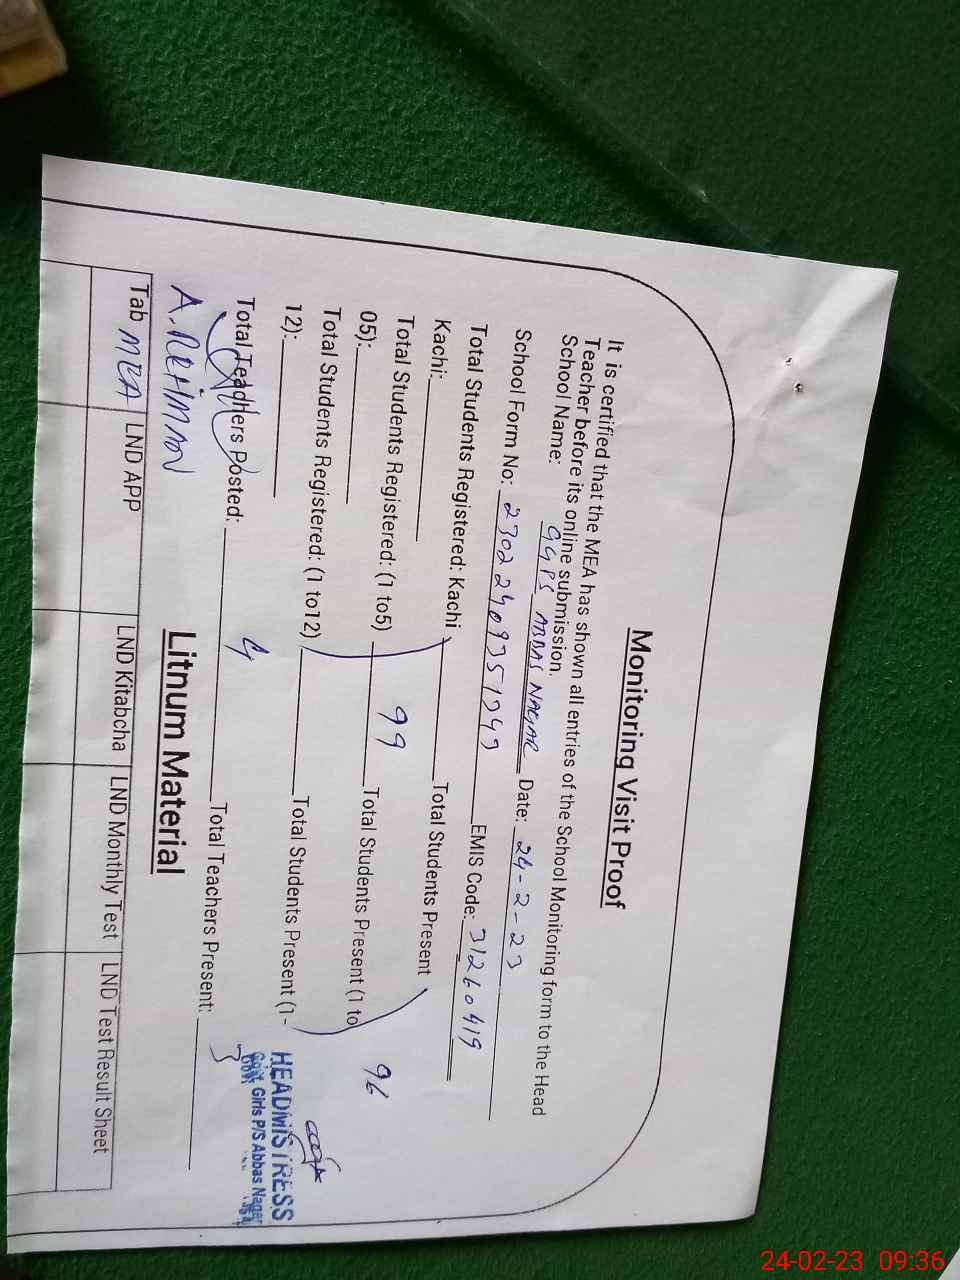 Monitoring Visit Proof
It is certified that the MEA has shown all entries of the School Monitoring form to the Head
Teacher before its online submission.
School Name: GGPS ABBAS NAGAR Date: 24-2-23
School Form No: 23022409351949 EMIS Code: 31260419
Total Students Registered: Kachi Total Students Present
Kachi:
Total Students Registered: (1 to5) 99 Total Students Present (1 to 96
05):
Total Students Registered: (1 to12) Total Students Present (1-
12):
Total Teachers Posted: 4 Total Teachers Present: 3
A. REHMAN
MEA
HEADMISTRESS
Govt Girls P/S Abbas Nagar
Litnum Material
Tab LND APP LND Kitabcha LND Monthly Test LND Test Result Sheet
24-02-23 09:36